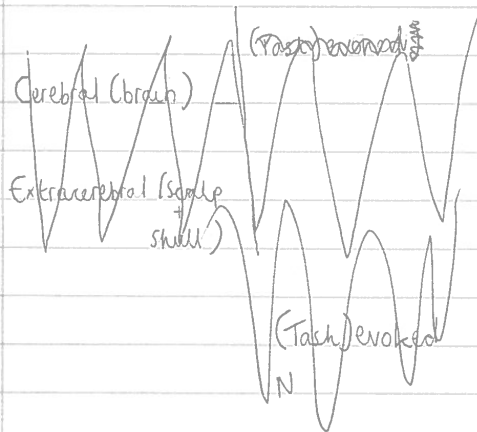 (Task) evoked
Cerebral (brain)
Extracerebral (scalp
+
skull)
(Task) evoked
N